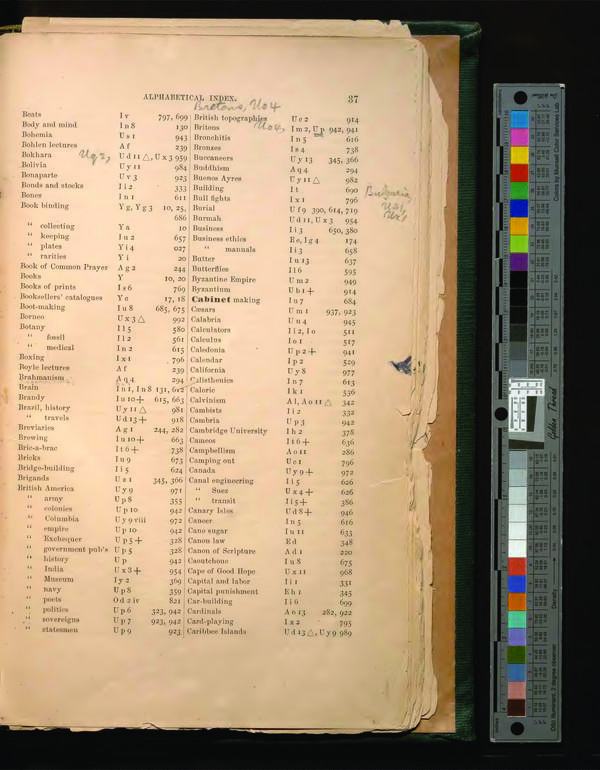 ALPHABETICAL INDEX. 37
Bretons, Uo4
Boats I v 797, 699
Body and mind I n 8 130
Bohemia U s 1 943
Bohlen lectures A f 239
Bokhara Uq2, U d 11 △, U x 3 959
Bolivia U y 11 984
Bonaparte U v 3 923
Bonds and stocks I i 2 333
Bones I n 1 611
Book binding Y g, Y g 3 10, 25,
686
" collecting Y a 10
" keeping I u 2 657
" plates Y i 4 027
" rarities Y i 20
Book of Common Prayer A g 2 244
Books Y 10, 20
Books of prints I s 6 769
Booksellers' catalogues Y c 17, 18
Boot-making I u 8 685, 675
Borneo U x 3 △ 992
Botany I l 5 580
" fossil I l 2 561
" medical I n 2 615
Boxing I x 1 796
Boyle lectures A f 239
Brahmanism A q 4 294
Brain I n 1, I n 8 131, 612
Brandy I u 10+ 615, 663
Brazil, history U y 11 △ 981
" travels U d 13+ 918
Breviaries A g 1 244, 282
Brewing I u 10+ 663
Bric-a-brac I t 6+ 738
Bricks I u 9 673
Bridge-building I i 5 624
Brigands U z 1 345, 366
British America U y 9 971
" army U p 8 355
" colonies U p 10 942
" Columbia U y 9 viii 972
" empire U p 10 942
" Exchequer U p 5+ 328
" government pub's U p 5 328
" history U p 942
" India U x 3+ 954
" Museum I y 2 369
" navy U p 8 359
" poets O d 2 iv 821
" politics U p 6 323, 942
" sovereigns U p 7 923, 942
" statesmen U p 9 923
British topographies U c 2 914
Britons Uo4, I m 2, U p 942, 941
Bronchitis I n 5 616
Bronzes I s 4 738
Buccaneers U y 13 345, 366
Buddhism A q 4 294
Buenos Ayres U y 11 △ 982
Building I t 690
Bulgaria,
Bull fights I x 1 796
Burial U f 9 390, 614, 719
Burmah U d 11, U x 3 954
Business I i 3 650, 380
Business ethics E e, I g 4 174
" manuals I i 3 658
Butter I u 13 637
Butterflies I l 6 595
Byzantine Empire U m 2 949
Byzantium U b 1+ 914
Cabinet making I u 7 684
Cæsars U m 1 937, 923
Calabria U n 4 945
Calculators I i 2, I o 511
Calculus I o 1 517
Caledonia U p 2+ 941
Calendar I p 2 529
California U y 8 977
Calisthenics I n 7 613
Caloric I k 1 536
Calvinism A l, A o 11 △ 342
Cambists I i 2 332
Cambria U p 3 942
Cambridge University I h 2 378
Cameos I t 6+ 636
Campbellism A o 11 286
Camping out U c 1 796
Canada U y 9+ 972
Canal engineering I i 5 626
" Suez U x 4+ 626
" transit I i 5+ 386
Canary Isles U d 8+ 946
Cancer I n 5 616
Cane sugar I u 11 633
Canon law E d 348
Canon of Scripture A d 1 220
Caoutchouc I u 8 675
Cape of Good Hope U x 11 968
Capital and labor I i 1 331
Capital punishment E h 1 345
Car-building I i 6 699
Cardinals A o 13 282, 922
Card-playing I x 2 795
Caribbee Islands U d 13 △, U y 9 989
Golden Thread
Density